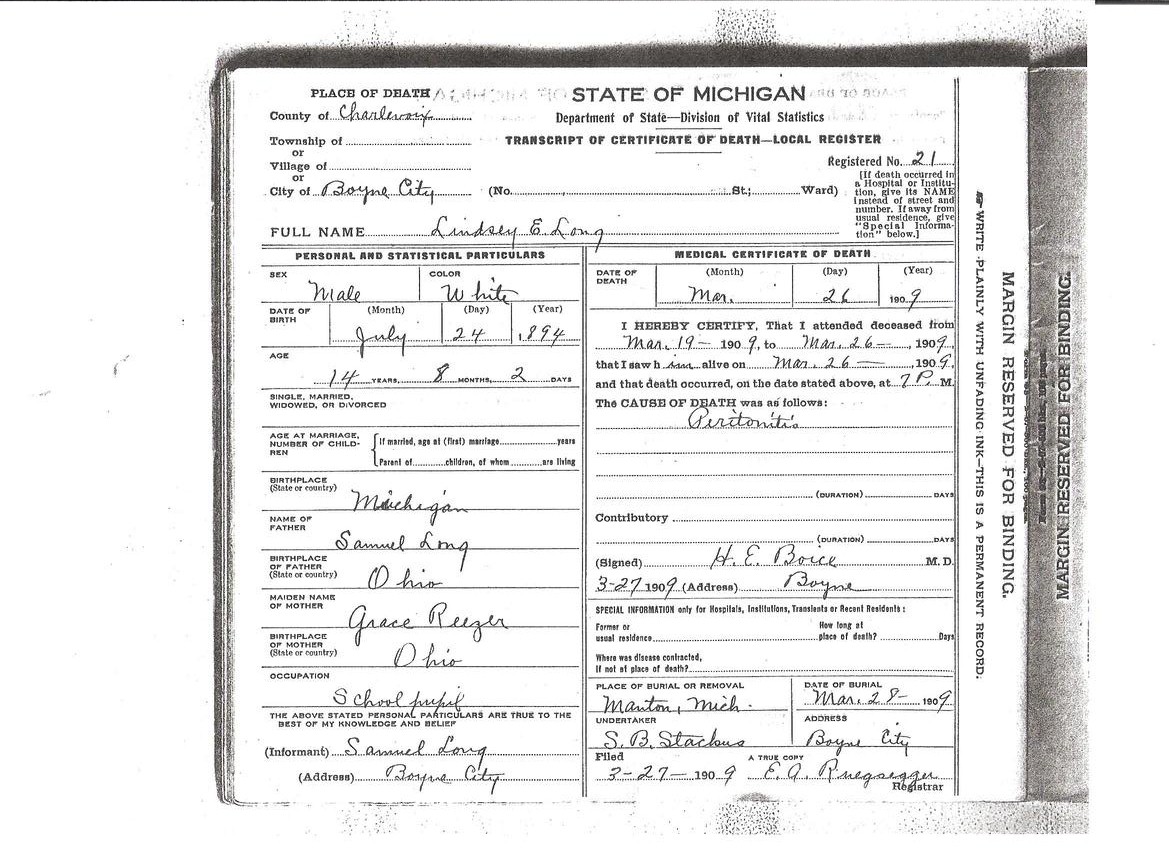 PLACE OF DEATH
STATE OF MICHIGAN
County of Charlevoix
Department of State—Division of Vital Statistics
Township of
TRANSCRIPT OF CERTIFICATE OF DEATH—LOCAL REGISTER
or
Village of
Registered No. 21
or
City of Boyne City (No. St.; Ward)
[If death occurred in
a Hospital or Institu-
tion, give its NAME
instead of street and
number. If away from
usual residence, give
"Special Informa-
tion" below.]
FULL NAME Lindsey E. Long
PERSONAL AND STATISTICAL PARTICULARS
SEX
Male
COLOR
White
DATE OF
BIRTH
(Month) (Day) (Year)
July 24 1894
AGE
14 YEARS, 8 MONTHS, 2 DAYS
SINGLE, MARRIED,
WIDOWED, OR DIVORCED
AGE AT MARRIAGE,
NUMBER OF CHILD-
REN
If married, age at (first) marriage years
Parent of children, of whom are living
BIRTHPLACE
(State or country)
Michigan
NAME OF
FATHER
Samuel Long
BIRTHPLACE
OF FATHER
(State or country)
Ohio
MAIDEN NAME
OF MOTHER
Grace Reezer
BIRTHPLACE
OF MOTHER
(State or country)
Ohio
OCCUPATION
School pupil
THE ABOVE STATED PERSONAL PARTICULARS ARE TRUE TO THE
BEST OF MY KNOWLEDGE AND BELIEF
(Informant) Samuel Long
(Address) Boyne City
MEDICAL CERTIFICATE OF DEATH
DATE OF
DEATH
(Month) (Day) (Year)
Mar. 26 1909
I HEREBY CERTIFY, That I attended deceased from
Mar. 19— 1909, to Mar. 26—, 1909,
that I saw him alive on Mar. 26—, 1909,
and that death occurred, on the date stated above, at 7 P. M.
The CAUSE OF DEATH was as follows:
Peritonitis
(DURATION) DAYS
Contributory
(DURATION) DAYS
(Signed) H. E. Boice M. D.
3-27 1909 (Address) Boyne
SPECIAL INFORMATION only for Hospitals, Institutions, Transients or Recent Residents:
Former or
usual residence
How long at
place of death? Days
Where was disease contracted,
if not at place of death?
PLACE OF BURIAL OR REMOVAL
Manton, Mich.
DATE OF BURIAL
Mar. 28- 1909
UNDERTAKER
S. B. Stackus
ADDRESS
Boyne City
Filed
3-27— 1909
A TRUE COPY
E. A. Ruegsegger
Registrar
WRITE PLAINLY WITH UNFADING INK—THIS IS A PERMANENT RECORD.
MARGIN RESERVED FOR BINDING.
MARGIN RESERVED FOR BINDING.